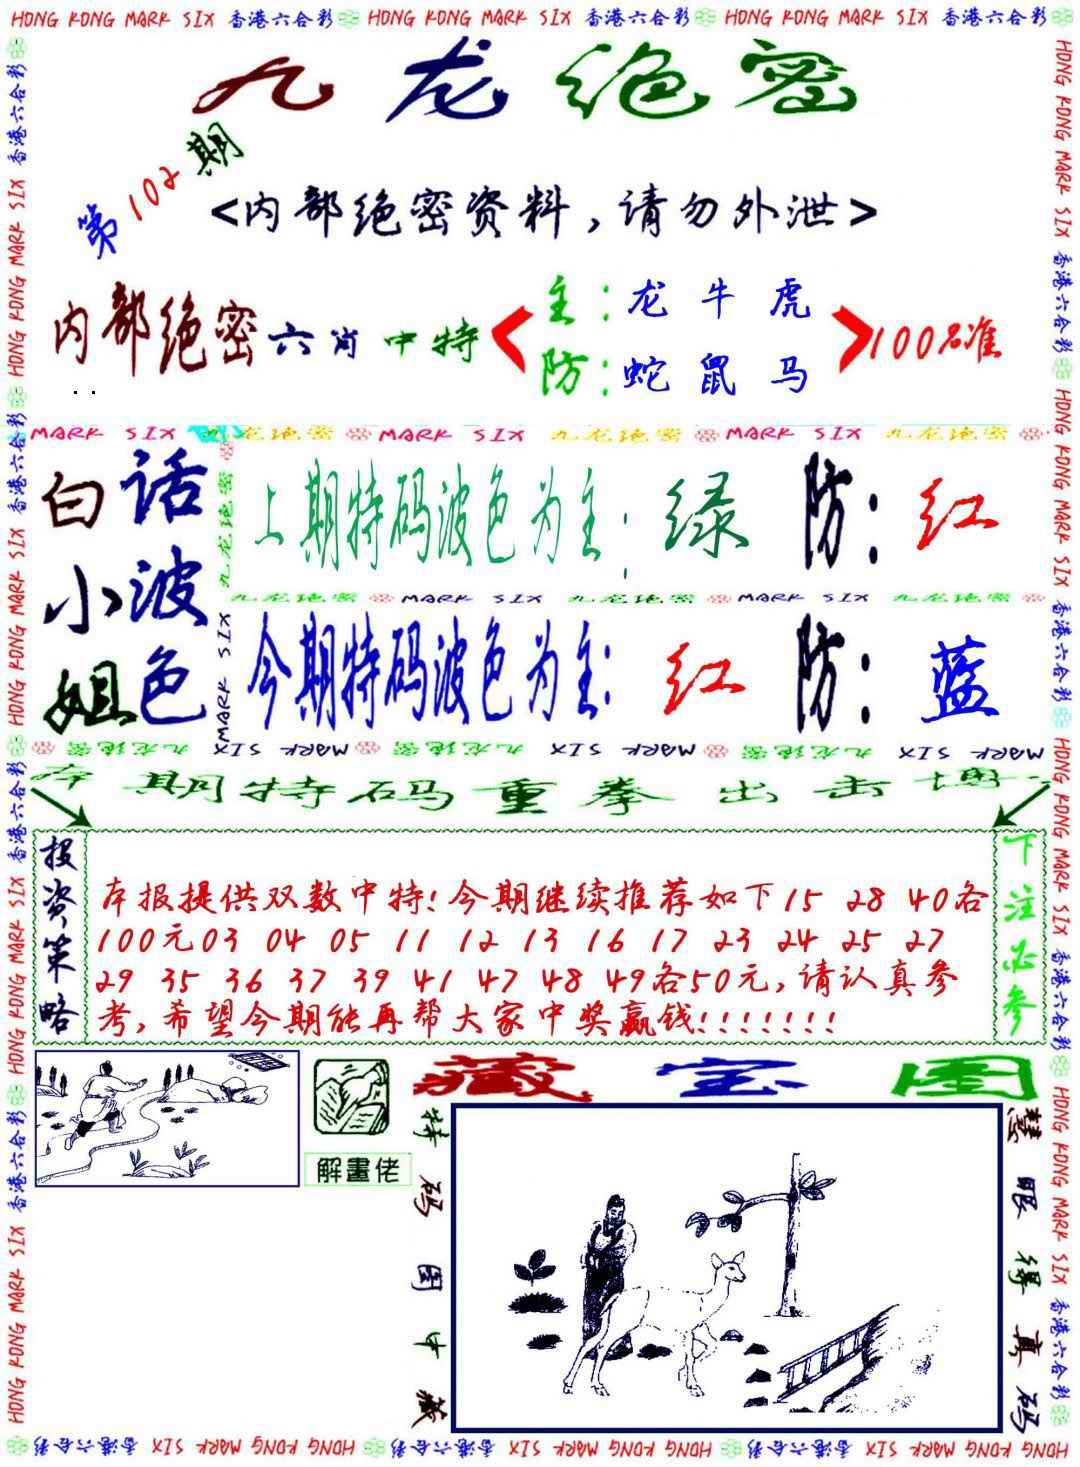 HONG KONG MARK SIX 香港六合彩 HONG KONG MARK SIX 香港六合彩 HONG KONG MARK SIX 香港六合彩
九龙绝密
第102期
<内部绝密资料,请勿外泄>
内部绝密六肖中特
主:龙 牛 虎
防:蛇 鼠 马
100%准
MARK SIX 九龙绝密 MARK SIX 九龙绝密 MARK SIX 九龙绝密
白话
小波
姐色
上期特码波色为主: 绿 防: 红
九龙绝密 MARK SIX 九龙绝密 MARK SIX 九龙绝密
今期特码波色为主: 红 防: 蓝
本期特码重拳出击博
投资策略
本报提供双数中特!今期继续推荐如下15 28 40各
100元03 04 05 11 12 13 16 17 23 24 25 27
29 35 36 37 39 41 47 48 49各50元,请认真参
考,希望今期能再帮大家中奖赢钱!!!!!!!
下注必参
解畫佬
藏宝图
特码图中藏
慧眼得真码
HONG KONG MARK SIX 香港六合彩 HONG KONG MARK SIX 香港六合彩 HONG KONG MARK SIX 香港六合彩